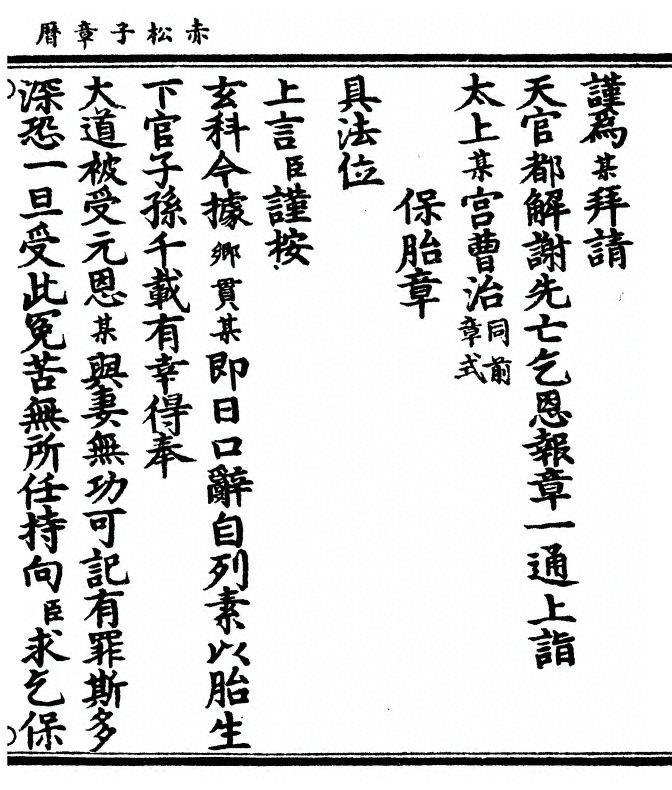 赤松子章曆
謹為某拜請
天官都解謝先亡乞恩報章一通上詣
太上某宮曹治同前章式
保胎章
具法位
上言臣謹按
玄科今據鄉貫某即日口辭自列素以胎生
下官子孫千載有幸得奉
大道被受元恩某與妻無功可記有罪斯多
深恐一旦受此冤苦無所任持向臣求乞保